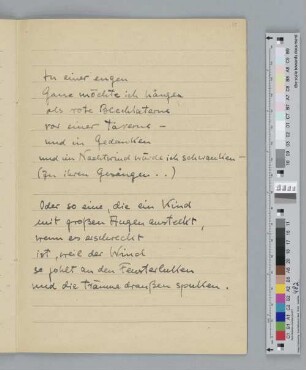 In einer engen
Gasse möchte ich hängen
als rote Blechlaterne
vor einer Taverne –
und in Gedanken
und im Nachtwind würde ich schwanken –
(zu ihren Gesängen . .)
Oder so eine, die ein Kind
mit großen Augen ansteckt,
wenn es erschreckt
ist, weil der Wind
so johlt an den Fensterluken
und die Träume draußen spuken.